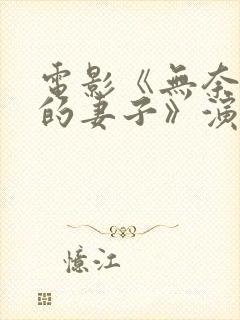 電影《無奈
的妻子》演
憶江